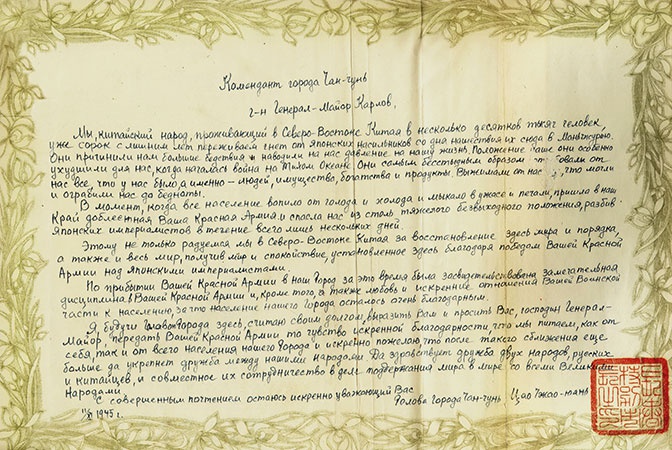 Комендант города Чан-чунь
г-н Генерал-Майор Карлов,
Мы, китайский народ, проживающий в Северо-Востоке Китая в несколько десятков тысяч человек,
уже сорок с лишним лет переживаем гнет от Японских насильников со дня нашествия их сюда в Маньчжурию.
Они причинили нам большие бедствия и наводили на нас давление на нашу жизнь. Положение наше они особенно
ухудшили для нас, когда началась война на Тихом Океане. Они самым бесстыдным образом от
нас все, что у нас было, а именно – людей, имущество, богатства и продукты. Выжимали от нас что могли
и ограбили нас до бедноты.
В момент, когда все население вопило от голода и холода и мыкало в ужасе и печали, пришла в наш
Край доблестная Ваша Красная Армия и спасла нас из столь тяжелого безвыходного положения, разбив
Японских империалистов в течение всего лишь нескольких дней.
Этому не только радуемся мы в Северо-Востоке Китая за восстановление здесь мира и порядка,
а также и весь мир, получив мир и спокойствие, установленное здесь благодаря победам Вашей Красной
Армии над Японскими империалистами.
По прибытии Вашей Красной Армии в наш Город за это время была засвидетельствована замечательная
дисциплина в Вашей Красной Армии и, кроме того, а также любовь и искренние отношения Вашей Воинской
части к населению, за что население нашего Города осталось очень благодарным.
Я, будучи Головой Города здесь, считаю своим долгом, выразить Вам и просить Вас, господин Генерал-
Майор, передать Вашей Красной Армии то чувство искренной благодарности, что мы питаем, как от
себя, так и от всего населения нашего Города и искренно пожелаю, что после такого сближения еще
больше да укрепнет дружба между нашими народами. Да здравствует дружба двух народов, русских
и китайцев, и совместное их сотрудничество в деле поддержания мира в мире со всеми Великими
Народами.
С совершенным почтением остаюсь искренно уважающий Вас
Голова Города Чан-чунь Цао Чжао-юань
1945 г.